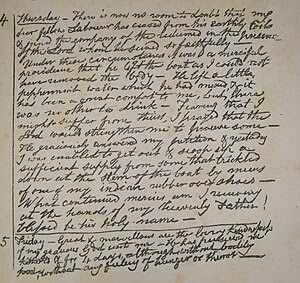 4 Thursday – There is now no room to doubt that my
dear fellow labourer has ceased from his earthly toils
& joined the company of the redeemed in the presence
of the Lord whom he served so faithfully –
Under these circumstances it was a merciful
providence that he left the boat as I could not
have removed the body – He left a little
peppermint water which he had mixed & it
has been a great comfort to me, but there
was no other to drink – Fearing that I
might suffer from thirst, I prayed that the
Lord would strengthen me to procure some –
He graciously answered my petition & yesterday
I was enabled to get out & scoop up a
sufficient supply from some that trickled
down at the stem of the boat by means
of one of my indian rubber over shoes –
What continued mercies am I receiving
at the hands of my heavenly Father!
blessed be his holy name –
5 Friday – Great & marvellous are the loving kindnesses
of my gracious God unto me – He has preserved me
hitherto & for 4 days, although without bodily
food without any feeling of hunger or thirst